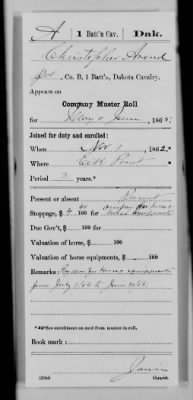 A | 1 Batt'n Cav. | Dak.
Christopher Arend
Pvt., Co. B, 1 Batt'n, Dakota Cavalry.
Appears on
Company Muster Roll
for May & June, 1865.
Joined for duty and enrolled:
When Nov 1, 1862.*
Where Elk Point
Period 3 years.*
Present or absent Present
Stoppage, $ 100 for
Due Gov't, $ 100
Valuation of horse, $ 100
Valuation of horse equipments, $ 100
Remarks: horse equipments
from July 1/64 to June 30/65.
*See enrollment on card from muster-in roll.
Book mark:
(358d) Copyist.